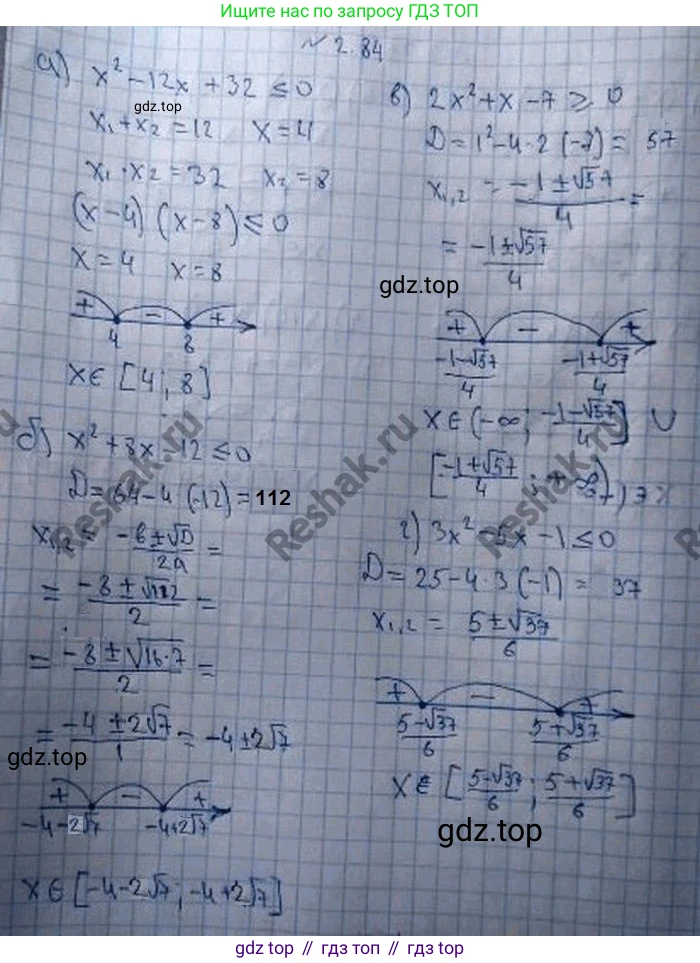 Ищите по запросу ГДЗ ТОП
№ 2.84
а) x² - 12x + 32 ≤ 0
gdz.top
x₁ + x₂ = 12 x = 4
x₁ · x₂ = 32 x₂ = 8
(x - 4) (x - 8) ≤ 0
x = 4 x = 8
+ - +
4 8
x ∈ [4; 8]
б) x² + 8x - 12 ≤ 0
D = 64 - 4 (-12) = 112
x₁,₂ = -b ± √D / 2a =
= -8 ± √112 / 2 =
= -8 ± √16·7 / 2 =
= -4 ± 2√7 / 1 = -4 ± 2√7
gdz.top
+ - +
-4-2√7 -4+2√7
x ∈ [-4-2√7; -4+2√7]
в) 2x² + x - 7 ≥ 0
D = 1² - 4 · 2 (-7) = 57
x₁,₂ = -1 ± √57 / 4 =
= -1 ± √57 / 4
gdz.top
+ - +
-1-√57 / 4 -1+√57 / 4
x ∈ (-∞; -1-√57 / 4] ∪
[-1+√57 / 4; +∞)
г) 3x² - 5x - 1 ≤ 0
D = 25 - 4 · 3 (-1) = 37
x₁,₂ = 5 ± √37 / 6
+ - +
5-√37 / 6 5+√37 / 6
x ∈ [5-√37 / 6; 5+√37 / 6]
gdz.top
Reshak.ru
Reshak.ru
gdz top // гдз топ // gdz.top